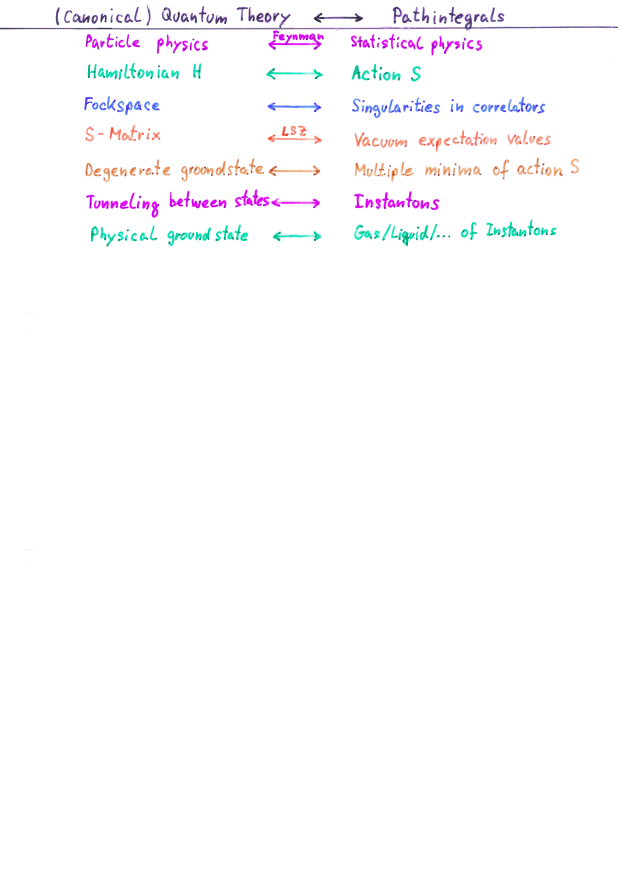 (Canonical) Quantum Theory ⟷ Pathintegrals
Particle physics ⟷ Feynman Statistical physics
Hamiltonian H ⟷ Action S
Fockspace ⟷ Singularities in correlators
S-Matrix ⟷ LSZ Vacuum expectation values
Degenerate groundstate ⟷ Multiple minima of action S
Tunneling between states ⟷ Instantons
Physical groundstate ⟷ Gas/Liquid/... of Instantons